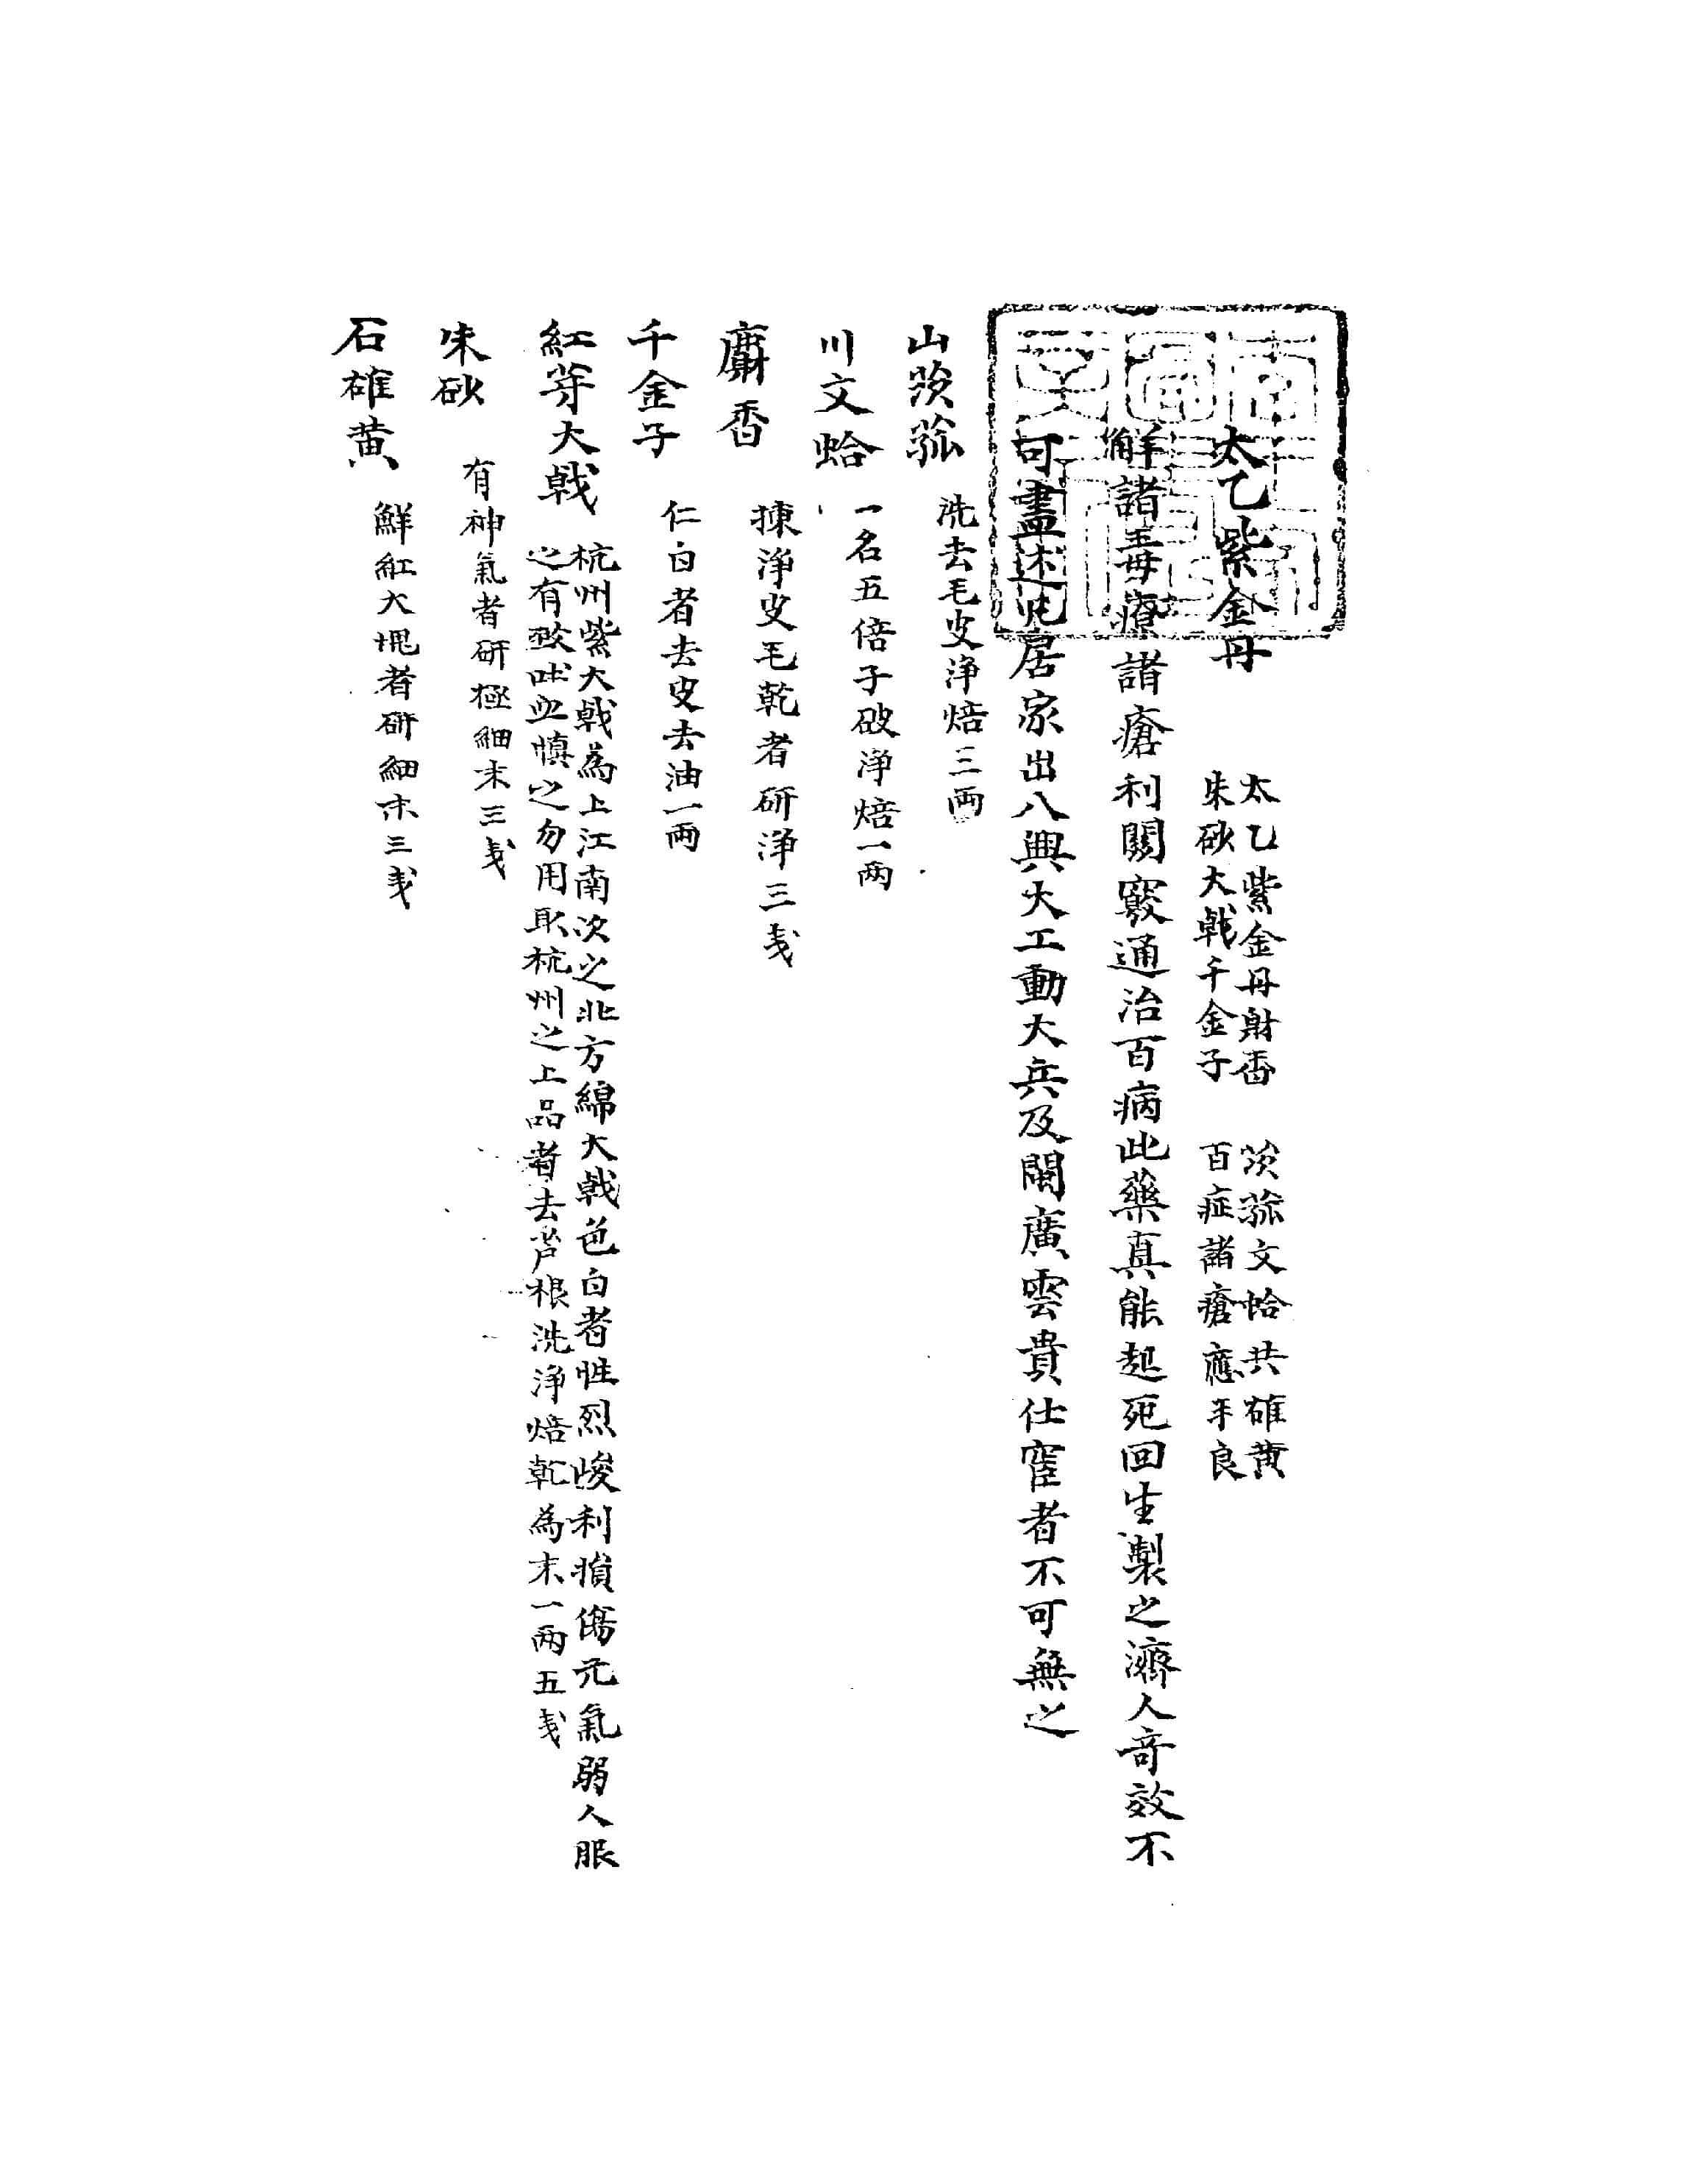 太乙紫金丹
太乙紫金丹射香　茨菰文蛤共雄黄
朱砂大戟千金子　百症諸瘡應手良
解諸毒療諸瘡利關竅通治百病此藥真能起死回生製之濟人奇效不
可盡述凡居家出入興大工動大兵及閩廣雲貴仕宦者不可無之
山茨菰　洗去毛皮浄焙三両
川文蛤　一名五倍子破浄焙一两
麝香　揀浄皮毛乾者研浄三戋
千金子　仁白者去皮去油一兩
紅芽大戟　杭州紫大戟為上江南次之北方綿大戟色白者性烈峻利損傷元氣弱人服
之有致吐血慎之勿用取杭州之上品者去芦根洗浄焙乾為末一两五戋
朱砂　有神氣者研極細末三戋
石雄黄　鮮紅大塊者研細末三戋